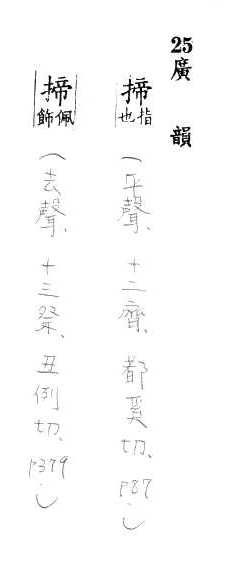 25廣韻
揥指也（平聲、十二齊、都奚切、P87）
揥佩飾（去聲、十三祭、丑例切、P379）